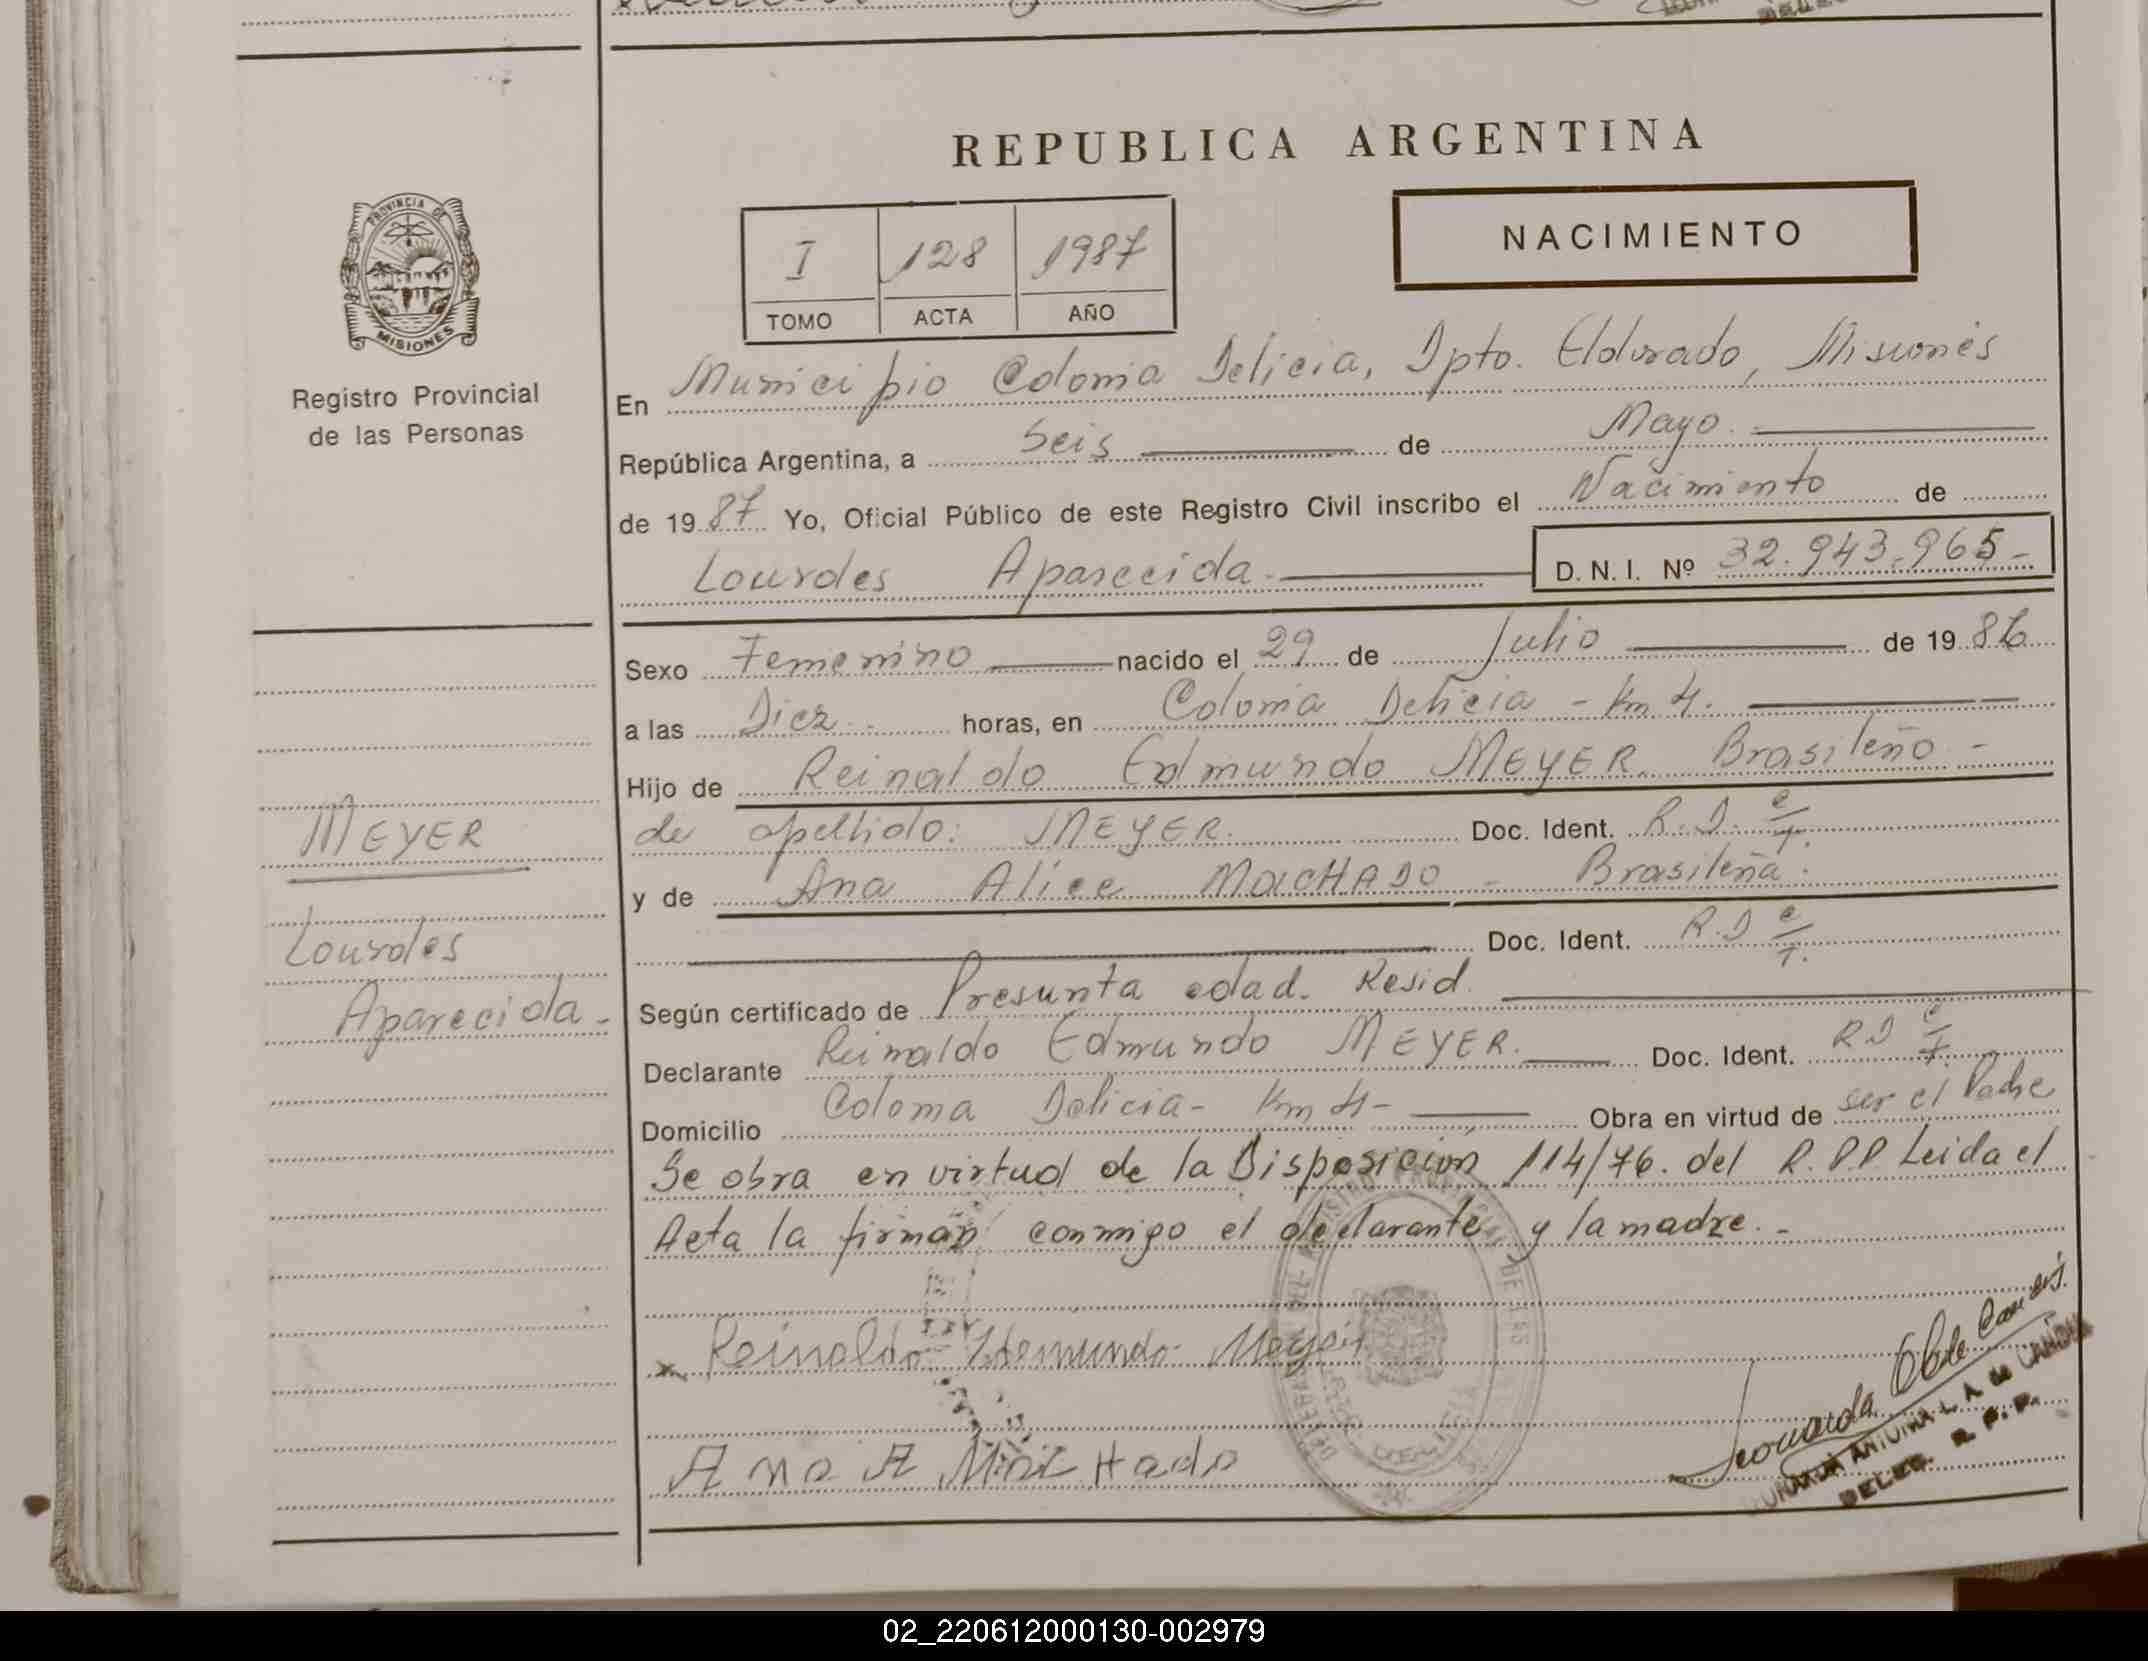 REPUBLICA ARGENTINA
NACIMIENTO
I 128 1987
TOMO ACTA AÑO
PROVINCIA DE
MISIONES
Registro Provincial
de las Personas
En Municipio Colonia Delicia, Dpto. Eldorado, Misiones
República Argentina, a Seis de Mayo.
de 1987 Yo, Oficial Público de este Registro Civil inscribo el Nacimiento de
Lourdes Aparecida. D. N. I. Nº 32.943.965-
Sexo Femenino nacido el 29 de Julio de 1986
a las Diez horas, en Colonia Delicia - Km 4.
Hijo de Reinaldo Edmundo MEYER. Brasileño -
de apellido: MEYER. Doc. Ident. R.D. e/T.
y de Ana Alice MACHADO - Brasileña.
Doc. Ident. R.D e/T.
Según certificado de Presunta edad. Resid.
Declarante Reinaldo Edmundo MEYER. Doc. Ident. RD e/T.
Domicilio Colonia Delicia- Km 4- Obra en virtud de ser el Padre
Se obra en virtud de la Disposición 114/76. del R.P.P Leida el
Acta la firman conmigo el declarante y la madre.-
MEYER
Lourdes
Aparecida-
x Reinaldo Edemundo Meyer
Ana A Machado
DELEG. R. P. P.
02_220612000130-002979